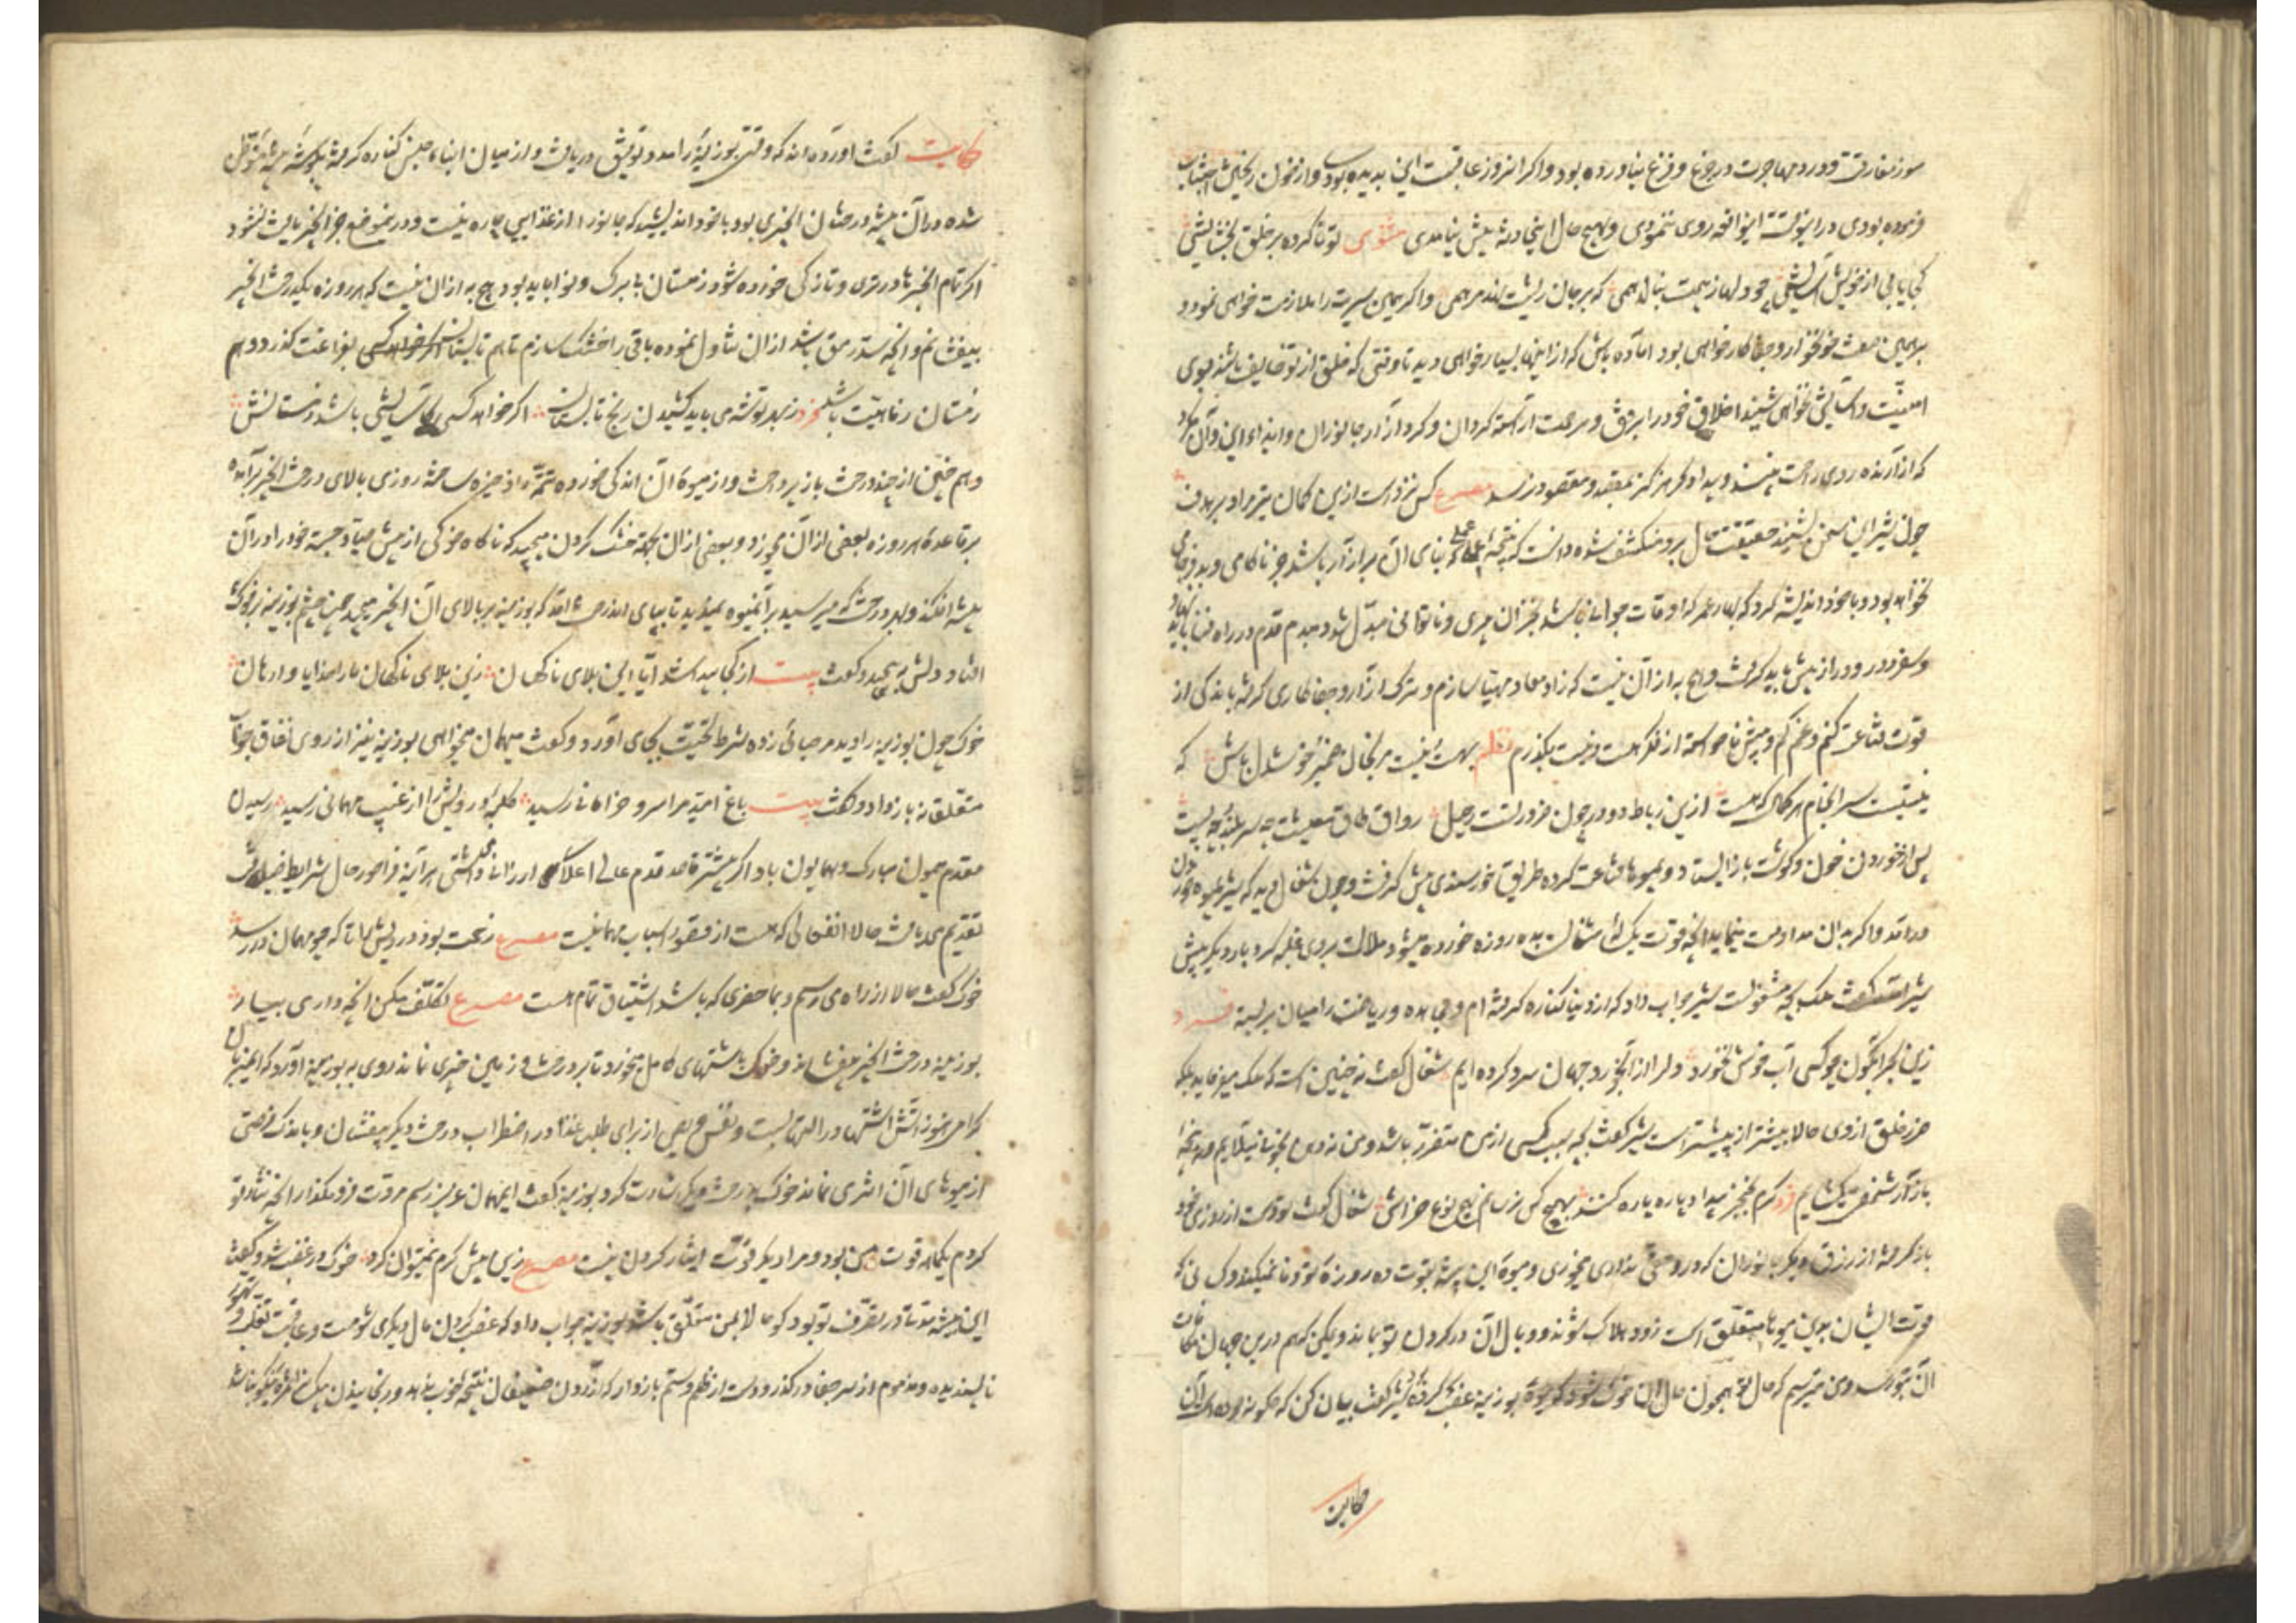 سوز مفارقت و درد مهاجرت در جزع و فزع نیاورده بود و اگر امروز عاقبت این بدیده بودی و از خون ریختن اجتناب
فرموده بودی در این وقت این واقعه روی ننمودی و بهیچ حال این حادثه پیش نیامدی مثنوی تو ناکرده بر خلق بخشایشی
کجا یابی از خویش آسایشی چو دلها ز بیمت بنالد همی که بر جان ریشت نهد مرهمی و اگر بهمین سیرت را ملازمت خواهی نمود و
برهمین صفت خونخوار و جفاکار خواهی بود آماده باش که از اینها بسیار خواهی دید تا وقتی که خلق از تو خایف باشند بوی
امنیت و آسایش نخواهی شنید اخلاق خود را برفق و مرحمت آراسته گردان و گرد آزار جانوران و ایذاء این و آن مگرد
که آزارنده روی راحت نبیند و بیدادگر هرگز بمقصد و مقصود نرسد مصرع کس نزد است ازین کمان تیر مراد بر هدف
چون شیر این سخن بشنید حقیقت حال برو منکشف شده دانست که نتیجه عملی که بنای آن بر آزار باشد جز ناکامی و بد فرجامی
نخواهد بود و با خود اندیشه کرد که بهار عمر که اوقات جوانی باشد بخزان پیری و ناتوانی مبدل شود هر دم قدم در راه فنا باید نهاد
و سفر دور و دراز پیش باید گرفت و هیچ به از آن نیست که زاد معاد مهیا سازم و ترک آزار و جفاکاری گرفته باندکی از
قوت قناعت کنم و غم کم و بیش ناخواسته از فکر هست و نیست بگذرم نظم بهست و نیست مرنجان ضمیر و خوشدل باش که
نیستیست سرانجام هر کمال که هست ازین رباط دو در چون ضرورتست رحیل رواق طاق معیشت چه سر بلند و چه پست
پس از خوردن خون و گوشت باز ایستاد و بمیوه قناعت کرده طریق خورسندی پیش گرفت و چون شغال دید که شیر بمیوه خوردن
درآمد و اگر بدان مداومت نماید آنچه قوت یک ساله شغال است بده روزه خورده میشود ملالت بر وی غلبه کرد بار دیگر پیش
شیر آمد گفت ملک بچه مشغولست شیر جواب داد که از دنیا کناره گرفته ام و مجاهده و ریاضت را میان بر بسته فرد
زین بحر آبگون چو کسی آب خوش نخورد دل را از آبخورد جهان سرد کرده ایم شغال گفت نه چنین است که ملک میفرماید بلکه
ضرر خلق از وی حالا بیشتر از پیشتر است شیر گفت بچه سبب کسی از من متضرر باشد و من نه دهن بخونی میالایم و نه پنجه
بآزار شخصی میگشایم فرد گرم بخنجر بیداد پاره پاره کنند بهیچ کس نرسانم بهیچ نوع خراشی شغال گفت تو دست از روزی خود
باز گرفته از رزق دیگر جانوران که درو حقی نداری میخوری و میوه این بیشه بقوت ده روزه تو وفا نمیکند و کسانی که
قوت ایشان بدین میوها متعلق است زود هلاک شوند و وبال آن در گردن تو بماند و یمکن که هم درین جهان مکافات
آن بتو رسد و من میترسم که حال تو همچون حال آن خوک شود که میوه بوزینه غصب کرده شیر گفت بیان کن که چگونه بوده است آن
حکایت
حکایت گفت آورده اند که وقتی بوزینه را مدد توفیق دریافت و از میان ابنای جنس کناره گرفته بگوشه بیشه متوطن
شده در آن بیشه درختان انجیری بود با خود اندیشید که جانور را از غذایی چاره نیست و درین موضع جز انجیر یافت نشود
اگر تمام انجیرها در تری و تازگی خورده شود زمستان بی برگ و نوا باید بود هیچ به از آن نیست که هر روزه یکدرخت انجیر
بیفشانم و آنچه سد رمق باشد از آن تناول نموده باقی را خشک سازم تا هم تابستان بفراغت گذرد و هم
زمستان رفاهیت باشد فرد ز بهر توشه دی باید کشیدن رنج تابستان اگر خواهد کسی کاسایشی باشد زمستانش
و هم چنین از چند درخت باز پرداخت و از میوه آن اندکی خورده تتمه را ذخیره ساخت روزی بالای درخت انجیر برآمده
بر قاعده هر روزه بعضی از آن میخورد و بعضی از آن بجهت خشک کردن میچید که ناگاه خوکی از پیش صیاد جسته خود را در آن
بیشه افکند و بهر درخت که میرسید برآن میوه نمیدید تا بپای آن درخت آمد که بوزینه بر بالای آن انجیر میچید چون چشم بوزینه بر خوک
افتاد دلش بپیچید و گفت بیت از کجا پیدا شد آیا این بلای ناگهان زین بلای ناگهان ما را خدایا وارهان
خوک چون بوزینه را دید مرحبائی زده شرط تحیت بجای آورد و گفت مهمان میخواهی بوزینه نیز از روی نفاق جوابی
متملقانه باز داد و گفت بیت باغ امید مرا سرو خرامانی رسید کلبه درویش را از غیب مهمانی رسید رسیدن
مقدم میمون مبارک و همایون باد اگر پیشتر قاصد قدم عالی اعلام ارزانی داشتی هر آینه فراخور حال شرایط ضیافت
تقدیم می یافت حالا انفعالی که هست از فقدان اسباب مهمانیست مصرع زحمت بود درویش را ناگه چو مهمان در رسد
خوک گفت حالا از راه می رسیم و بما حضری که باشد اشتیاق تمام هست مصرع تکلف مکن آنچه داری بیار
بوزینه درخت انجیر میفشاند و خوک باشتهای کامل میخورد تا بر درخت و زمین چیزی نماند روی به بوزینه آورد که ای میزبان
گرامی هنوز آتش اشتها در التهابست و نفس حریص از برای طلب غذا در اضطراب درخت دیگر بیفشان و باندک فرصتی
از میوهای آن اثری نماند خوک بدرخت دیگر اشارت کرد بوزینه گفت ای مهمان عزیز رسم مروت فرو مگذار آنچه نثار تو
کردم یکماهه قوت من بود و مرا دیگر قوت ایثار کردن نیست مصرع زین بیش کرم نمیتوان کرد خوک در غضب شد و گفت
این بیشه مدتها در تصرف تو بود گو حالا بمن متعلق باش بوزینه جواب داد که غصب کردن مال دیگری شومست و عاقبت تغلب و تهور
ناپسندیده و مذموم از سر جفا درگذر و دست از ظلم و ستم باز دار که آزردن ضعیفان نتیجه خوب ندهد و رنجانیدن بیکسان ثمره نیکو نباشد